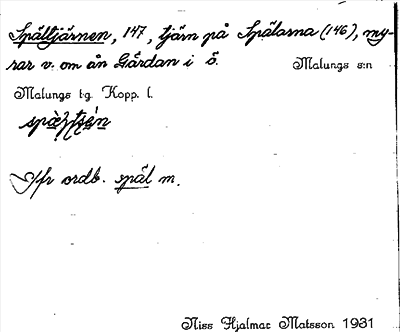 Spåltjärnen, 147, tjärn på Spålarna (146), my-
rar v. om ån Gårdan i ö. Malungs s:n
Malungs tg. Kopp. l.
Jfr ordb. spål m.
Niss Hjalmar Matsson 1931